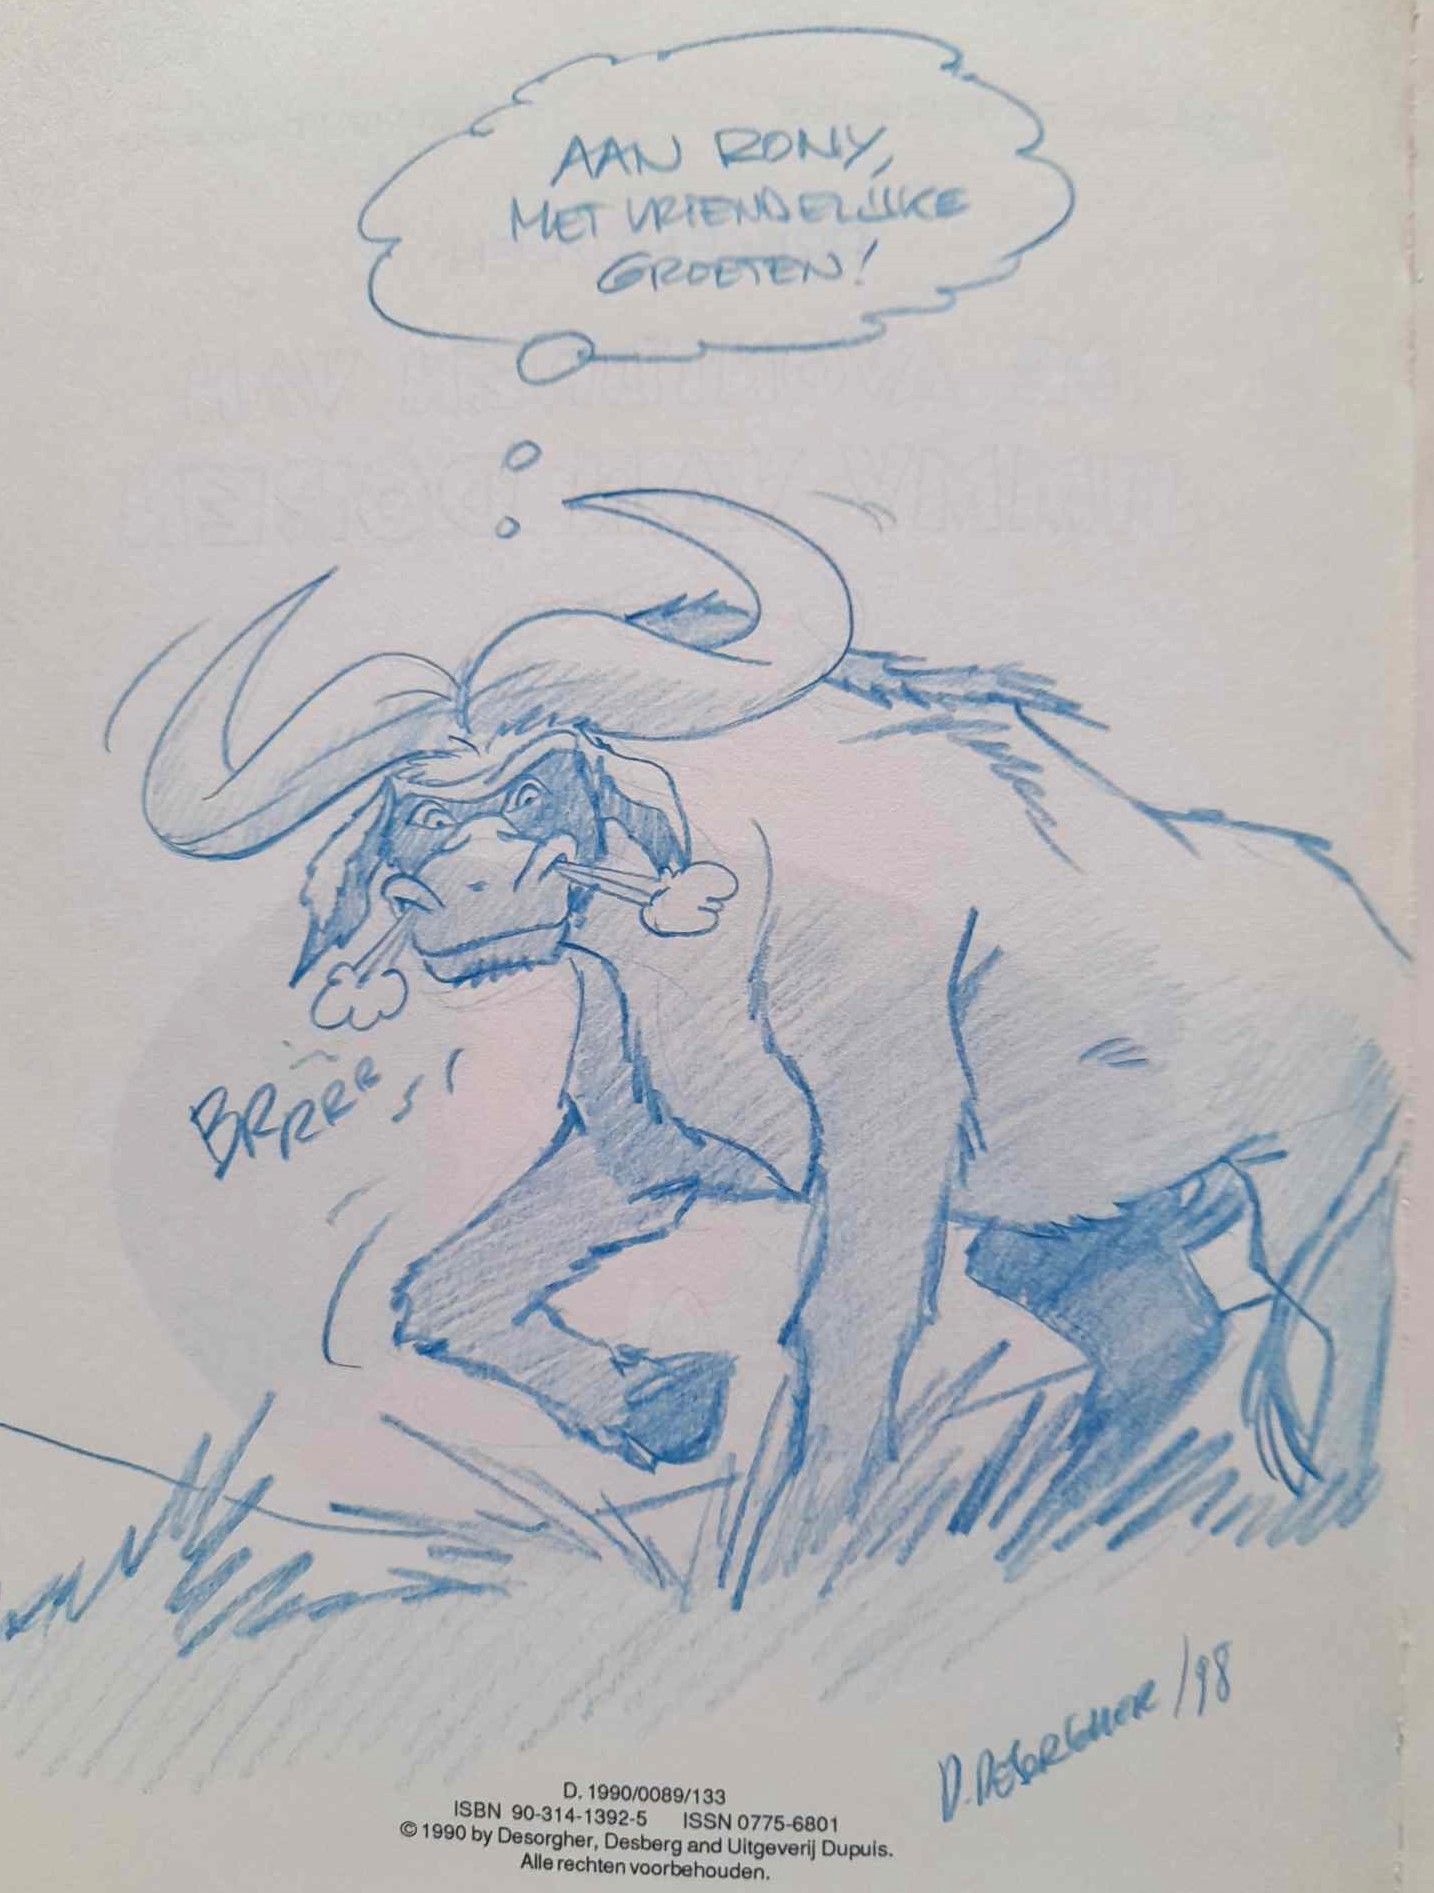 AAN RONY,
MET VRIENDELIJKE
GROETEN!
BRRRRR
D. DESORGHER /98
D. 1990/0089/133
ISBN 90-314-1392-5 ISSN 0775-6801
© 1990 by Desorgher, Desberg and Uitgeverij Dupuis.
Alle rechten voorbehouden.